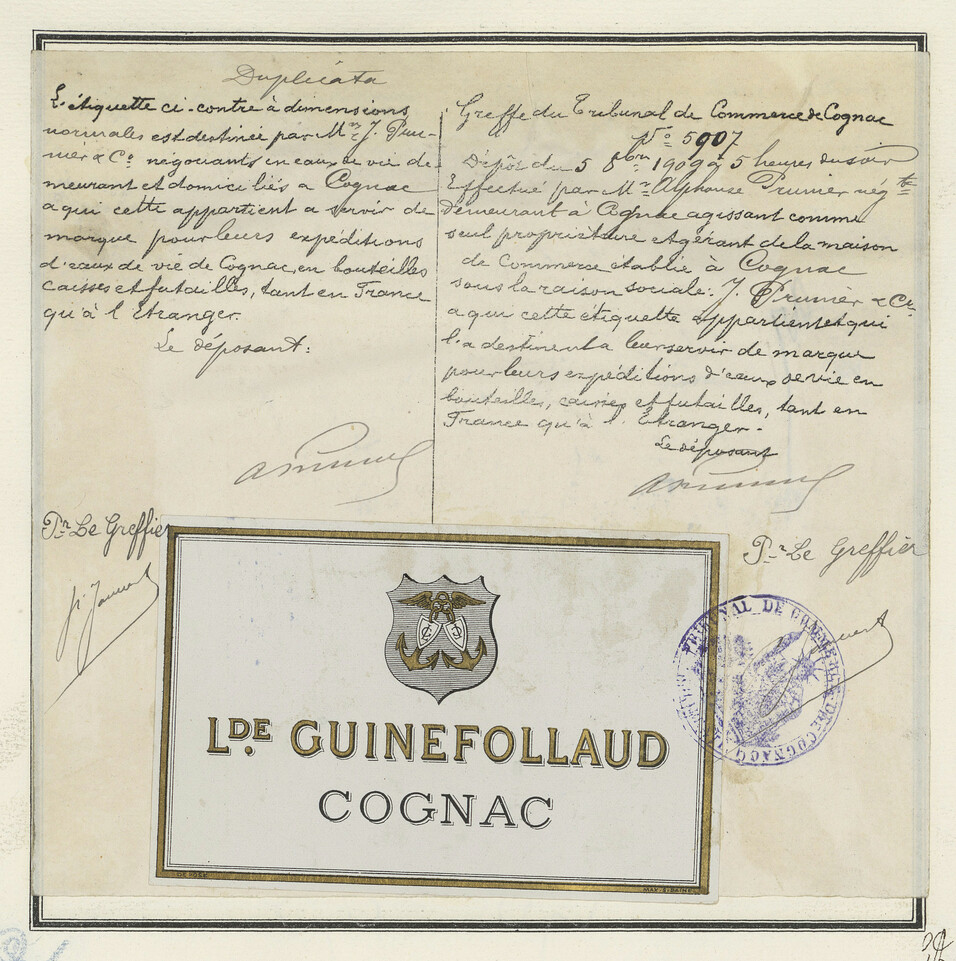 Duplicata
L'étiquette ci-contre à dimensions
normales est destinée par Mrs J. Pru-
nier & Co. négociants en eaux de vie de-
meurant et domiciliés à Cognac
a qui cette appartient a servir de
marque pour leurs expéditions
d'eaux de vie de Cognac, en bouteilles
caisses et futailles, tant en France
qu'à l'Etranger.
Le déposant:
Pr Le Greffier
Greffe du Tribunal de Commerce de Cognac
No 5907
Dépôt du 5 8bre 1909 à 5 heures du soir
Effectué par Mr Alphonse Prunier négte
demeurant à Cognac agissant comme
seul propriétaire et gérant de la maison
de Commerce établie à Cognac
sous la raison sociale: J. Prunier & Co.
a qui cette étiquette appartient et qui
l'a destinent a leur servir de marque
pour leurs expéditions d'eaux de vie en
bouteilles, caisses et futailles, tant en
France qu'à l'Etranger.
Le déposant
Pr Le Greffier
TRIBUNAL DE COMMERCE DE COGNAC
LDE GUINEFOLLAUD
COGNAC